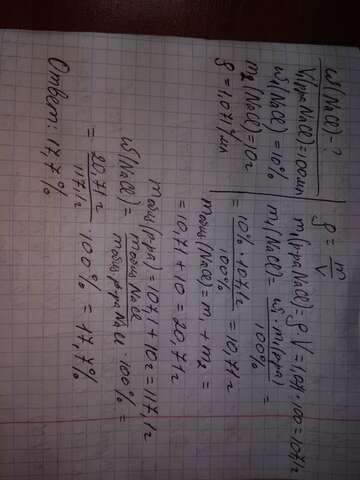 ω(NaCl) - ?
V(р-ра NaCl) = 100 мл
ω₁(NaCl) = 10%
m₂(NaCl) = 10 г
ρ = 1,071 г/мл
ρ = m/V
m₁(р-ра NaCl) = ρ·V = 1,07·100 = 107,1 г
m₁(NaCl) = ω₁·m₁(р-ра)/100% =
= 10%·107,1 г/100% = 10,71 г
mобщ(NaCl) = m₁ + m₂ =
= 10,71 + 10 = 20,71 г
mобщ(р-ра) = 107,1 + 10 г = 117,1 г
ω(NaCl) = mобщ NaCl/mобщ р-ра NaCl · 100% =
= 20,71 г/117,1 г · 100% = 17,7%
Ответ: 17,7%